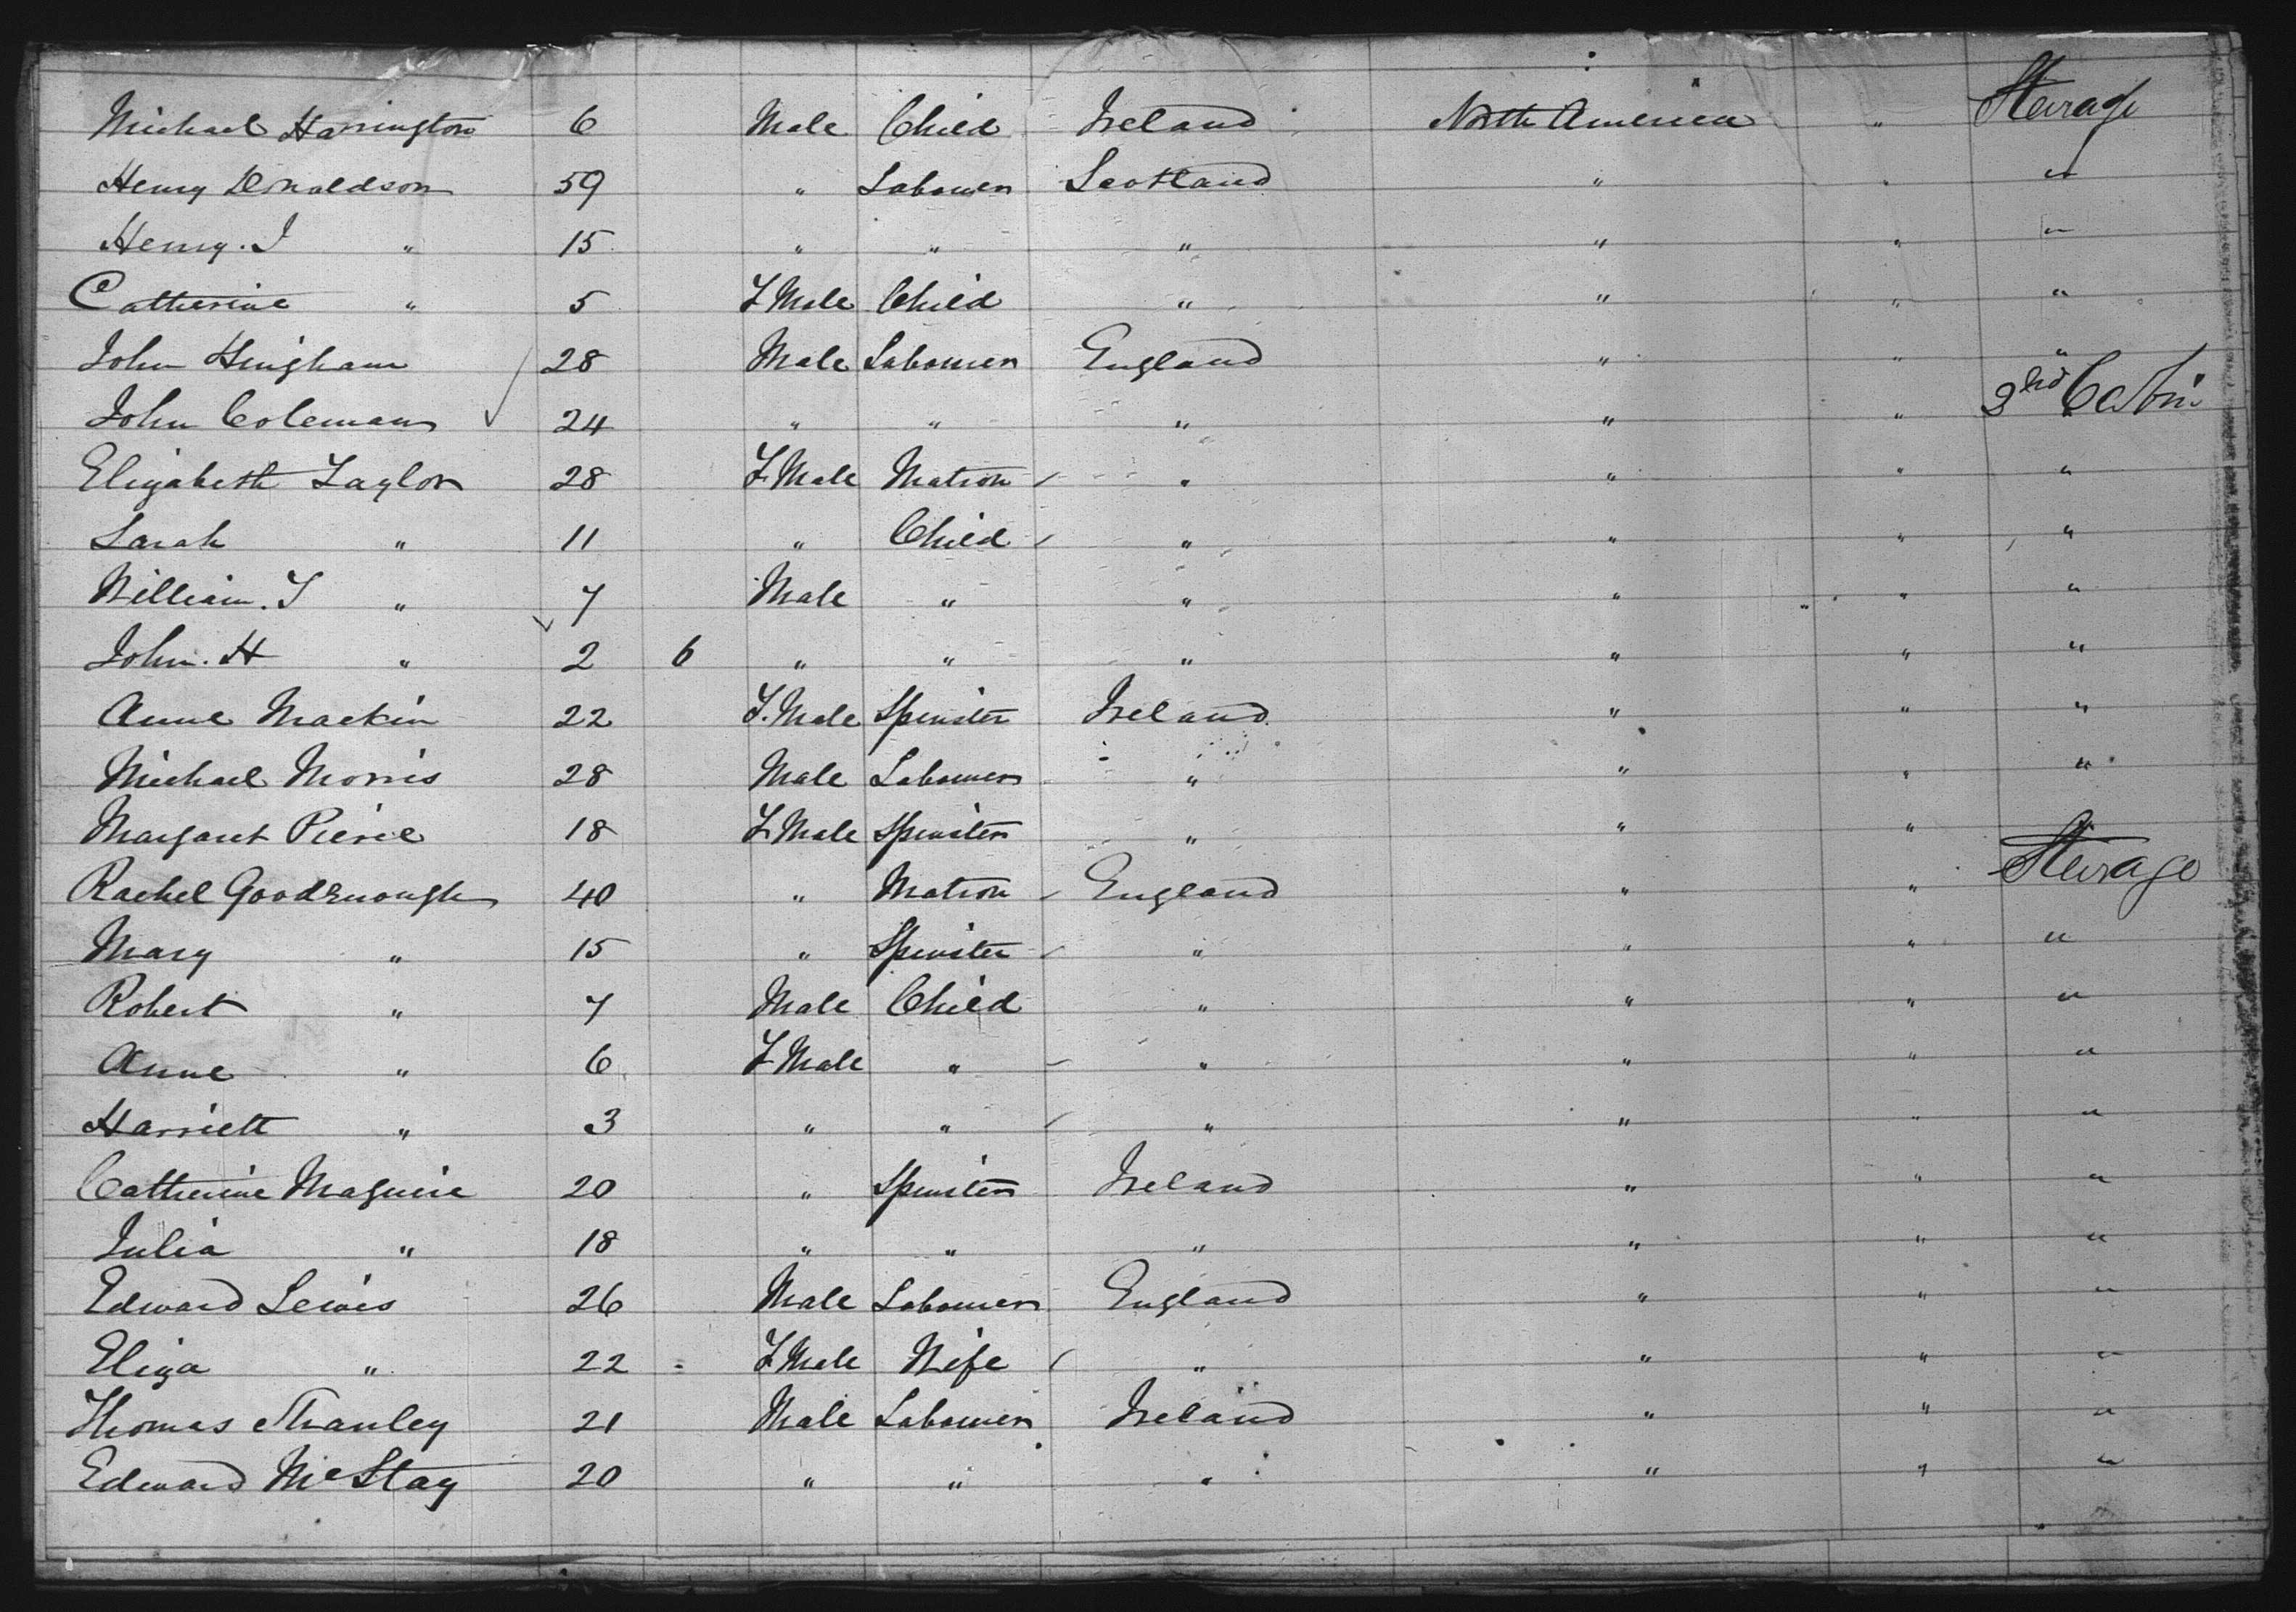 Michael Harrington 6 Male Child Ireland North America " Steerage
Henry Donaldson 59 " Labourer Scotland " " "
Henry. J " 15 " " " " " "
Catherine " 5 F Male Child " " " "
John Hingham 28 Male Labourer England " " "
John Coleman 24 " " " " " 2nd Cabin
Elizabeth Taylor 28 F. Male Matron " " " "
Sarah " 11 " Child " " " "
William. T " 7 Male " " " " "
John. H " 2 6 " " " " " "
Anne Mackin 22 F. Male Spinster Ireland " " "
Michael Morris 28 Male Labourer " " " "
Margaret Pierce 18 F. Male Spinster " " " "
Rachel Goodenough 40 " Matron England " " Steerage
Mary " 15 " Spinster " " " "
Robert " 7 Male Child " " " "
Anne " 6 F Male " " " " "
Harriett " 3 " " " " " "
Catherine Maguire 20 " Spinster Ireland " " "
Julia " 18 " " " " " "
Edward Lewis 26 Male Labourer England " " "
Eliza " 22 F. Male Wife " " " "
Thomas Stanley 21 Male Labourer Ireland " " "
Edward McStay 20 " " " " " "